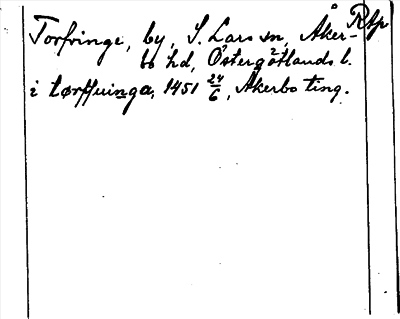 Rap
Torfvinge, by, S. Lars sn, Åker-
bo hd, Östergötlands l.
i tørffuinga, 1451 24/6, Åkerbo ting.